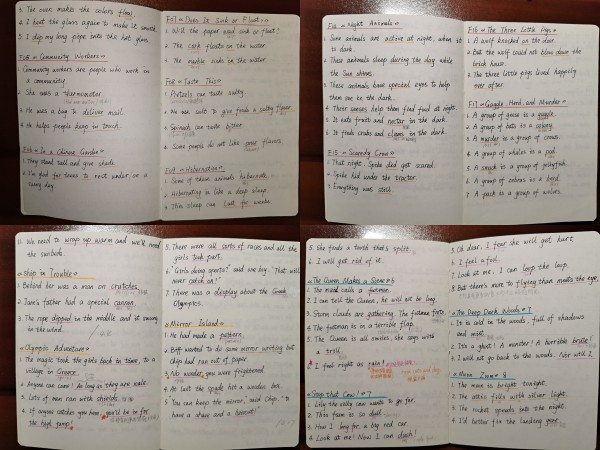 3. The oven makes the colors flow.
4. I heat the glass again to make it smooth.
5. I dip my long pipe into the hot glass.
F05 《Community Workers》
1. Community workers are people who work in
a community.
2. She uses a thermometer.
3. He uses a bag to deliver mail.
4. He helps people keep in touch.
F06 《In a Chinese Garden》
1. They stand tall and give shade
2. I'm glad for trees to rest under on a
sunny day.
F07 《Does It Sink or Float》
1. Will the paper sink or float?
2. The cork floats on the water.
3. The marble sinks in the water.
F08 《Taste This》
1. Pretzels can taste salty.
2. We use salt to give foods a salty flavor
3. Spinach can taste bitter.
4. Some people do not like sour flavors.
F09 《Hibernation》
1. Some of these animals hibernate.
2. Hibernating is like a deep sleep.
3. This sleep can last for weeks.
F10 《Night Animals》
1. Some animals are active at night, when it
is dark.
2. These animals sleep during the day while
the sun shines.
3. These animals have special eyes to help
them see in the dark.
4. Their senses help them find food at night.
5. It eats fruit and nectar in the dark.
6. It finds crabs and clams in the dark.
F15 《Scaredy Crow》
1. That night, Spike did get scared.
2. Spike hid under the tractor.
3. Everything was still.
F16 《The Three Little Pigs》
1. A wolf knocked on the door.
2. But the wolf could not blow down the
brick house.
3. The three little pigs lived happily
ever after.
F17 《Gaggle, Herd, and Murder》
1. A group of geese is a gaggle.
2. A group of bats is a colony.
3. A murder is a group of crows.
4. A group of whales is a pod.
5. A smack is a group of jellyfish.
6. A group of zebras is a herd.
7. A pack is a group of wolves.
11. We need to wrap up warm and we'll need
the sunbeds.
《Ship in Trouble》
1. Behind her was a man on crutches.
2. Jane's father had a special cannon.
3. The rope dipped in the middle and it swung
in the wind.
《Olympic Adventure》
1. The magic took the girls back in time, to a
village in Greece.
2. Anyone can come! As long as they are male.
3. Lots of men ran with shields.
4. If anyone catches you here, you'll be in for
the high jump!
5. There were all sorts of races and all the
girls took part.
6. "Girls doing sports?" said one boy. "That will
never catch on!"
7. There was a display about the Greek
Olympics.
《Mirror Island》
1. He had made a pattern.
2. Biff wanted to do some mirror writing but
Chip had run out of paper.
3. No wonder you were frightened.
4. At last the spade hit a wooden box.
5. "You can keep the mirror," said Chip, "to
have a shave and a haircut!"
5. She finds a tooth that's split.
6. I will get rid of it.
《The Queen Makes a Scene》6
1. The maid calls a footman.
2. I can tell the Queen, he will not be long.
3. Storm clouds are gathering. The footman frets.
4. The footman is in a terrible flap.
5. The Queen is all smiles, she says with
a trill.
6. I feel right as rain!
《Stop that Cow!》7
1. Lily the silly cow wants to go far.
2. This farm is so dull
3. How I long for a big red car.
4. Look at me! Now I can dash!
5. Oh dear. I fear she will get hurt.
6. I feel a fool.
7. Look at me. I can loop the loop.
8. But there's more to flying than meets the eye.
《The Deep Dark Woods》7
1. It is cold in the woods, full of shadows
and mist.
2. It's a ghost! A monster! A horrible brute!
3. I will not go back to the woods. Nor will I.
《Moon Zoom》8
1. The moon is bright tonight.
2. The attic fills with silver light.
3. The rocket speeds into the night.